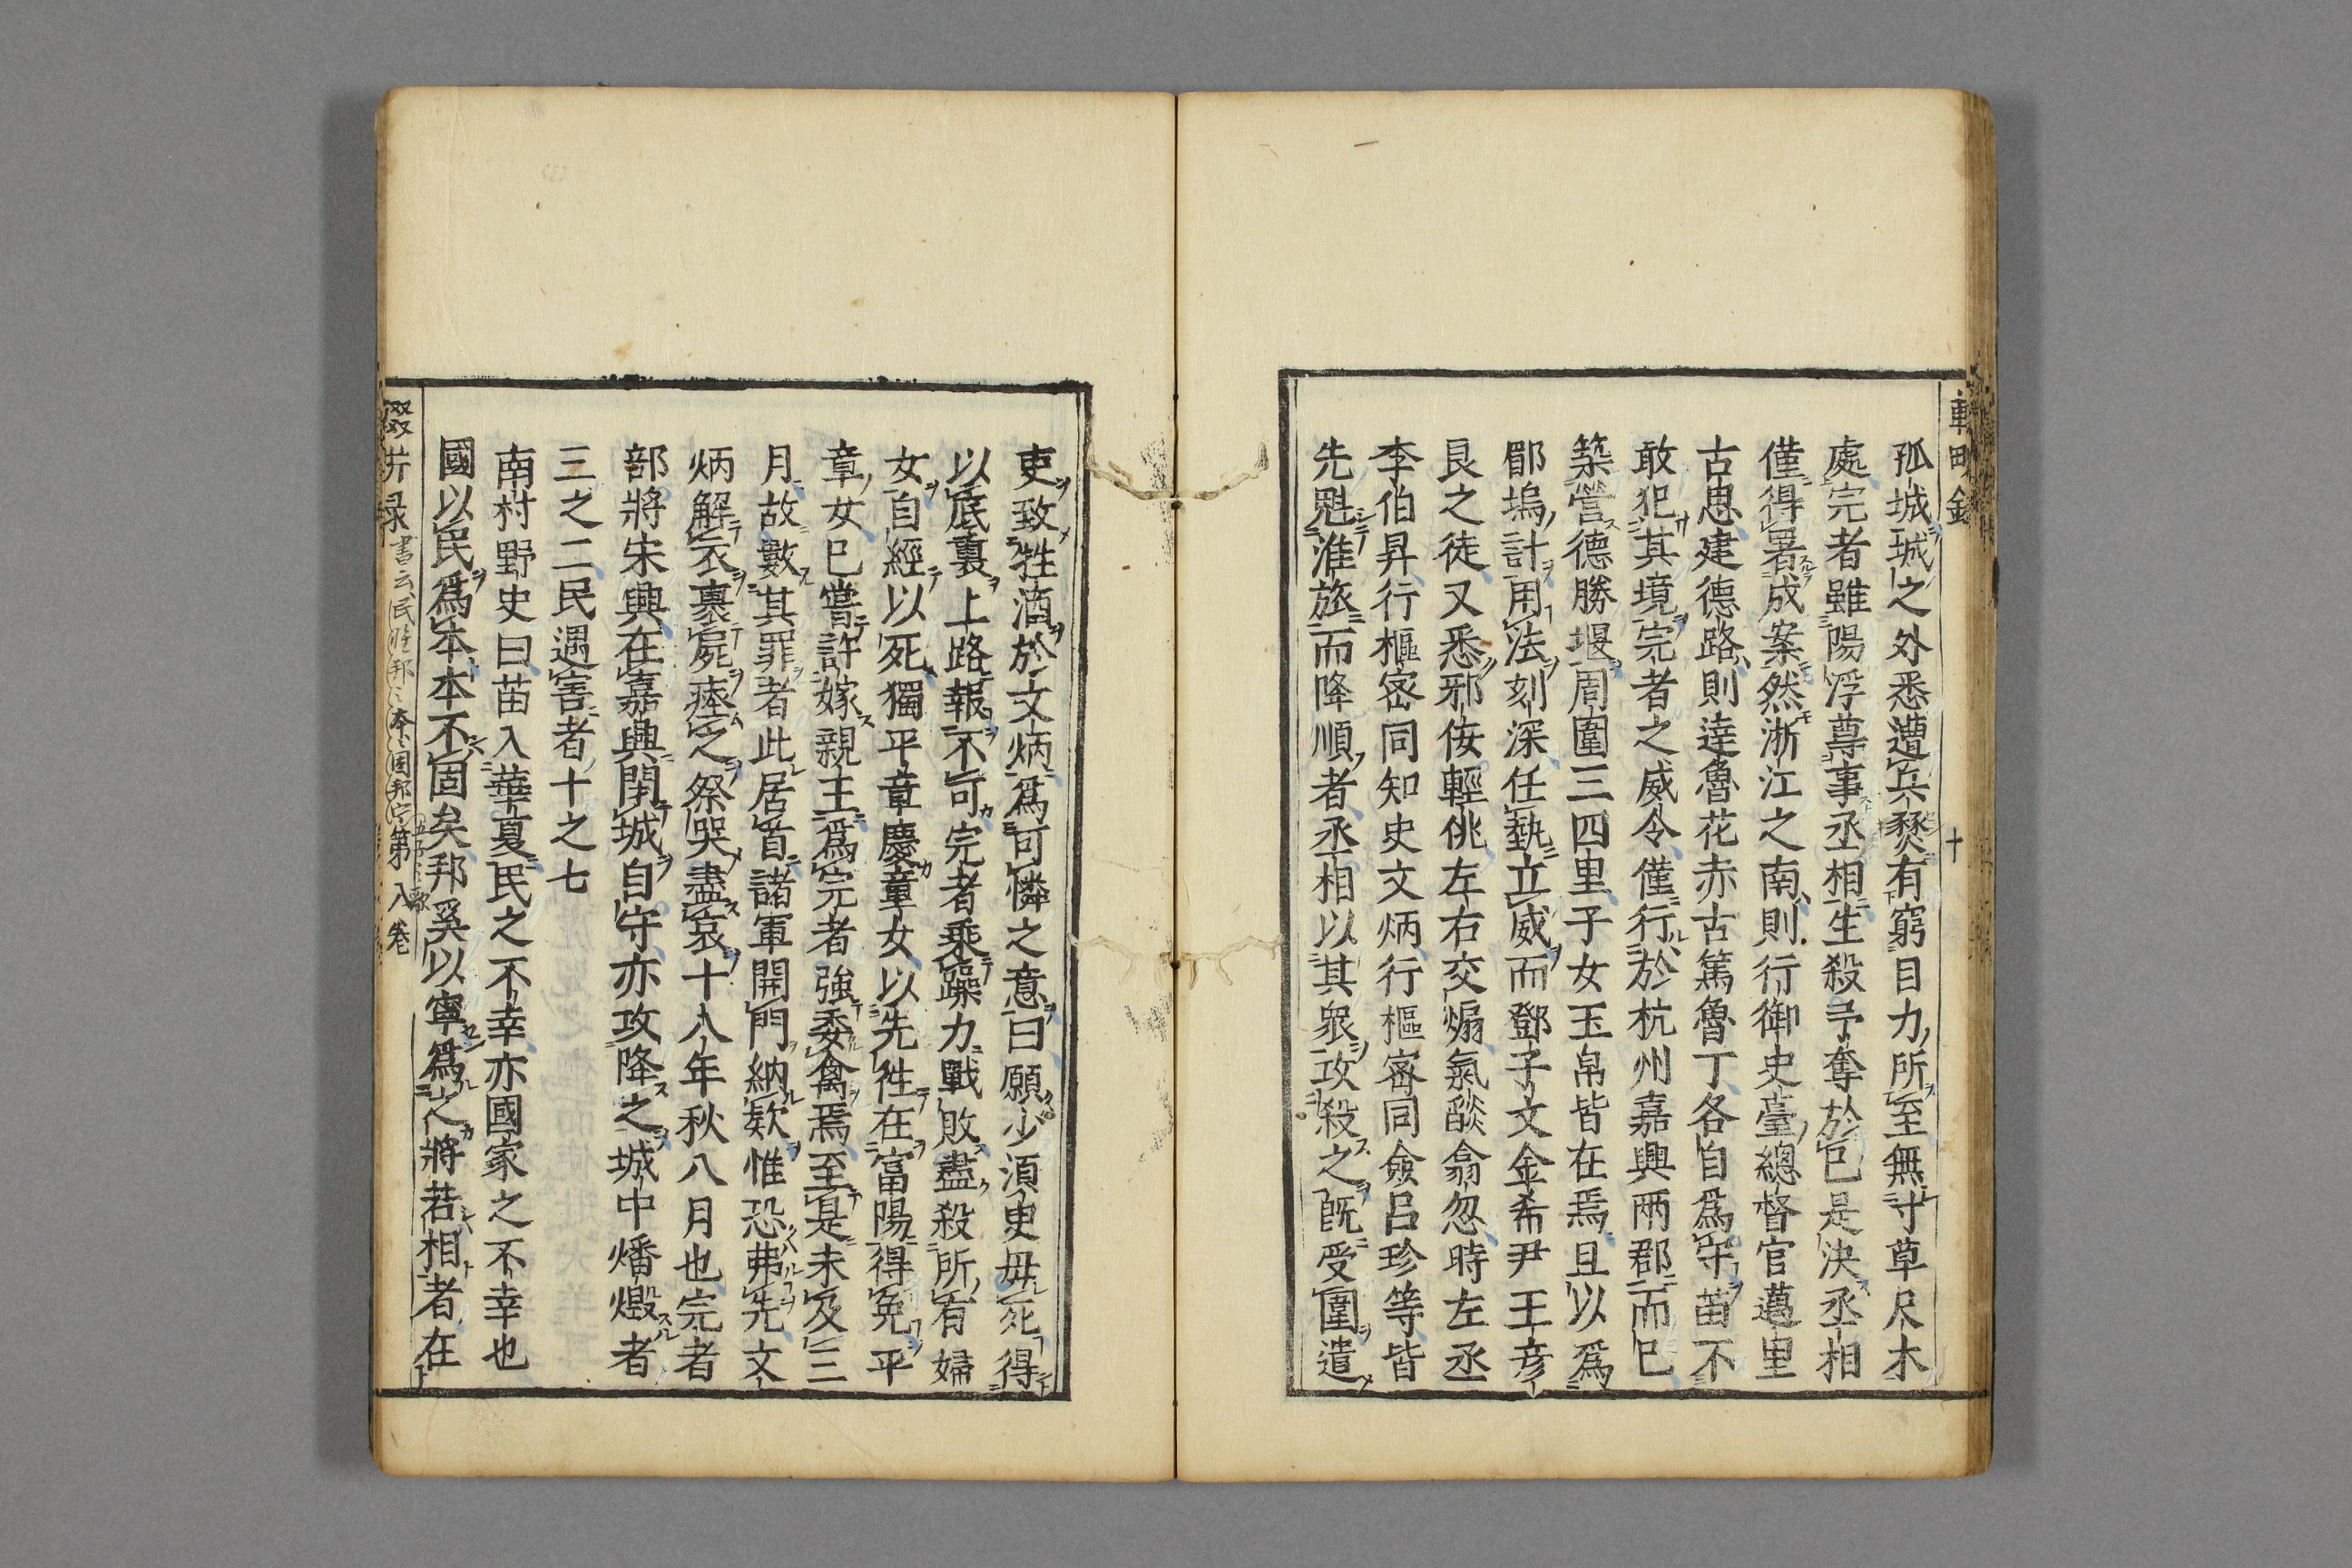 孤城城之外悉遭兵燹有窮目力所至無寸草尺木
處完者雖陽浮尊事丞相生殺予奪於己是決丞相
僅得署成案然浙江之南則行御史臺總督官邁里
古思建德路則達魯花赤古篤魯丁各自爲守苗不
敢犯其境完者之威令僅行於杭州嘉興兩郡而已
築營德勝堰周圍三四里子女玉帛皆在焉且以爲
郿塢計用法刻深任執立威而鄧子文金希尹王彦
良之徒又悉邪侫輕佻左右交煽氣燄翕忽時左丞
李伯昇行樞密同知史文炳行樞密同僉呂珍等皆
先魁淮旅而降順者丞相以其衆攻殺之既受圍遣
吏致牲酒於文炳爲可憐之意曰願少須臾毋死得
以底裏上路報不可完者乘躁力戰敗盡殺所有婦
女自經以死獨平章慶童女以先徃在富陽得免平
章女已嘗許嫁親王爲完者強委禽焉至是未及三
月故數其罪者此居首諸軍開門納欵惟恐弗先文
炳解衣裹屍瘞之祭哭盡哀十八年秋八月也完者
部將宋興在嘉興閉城自守亦攻降之城中燔燬者
三之二民遇害者十之七
南村野史曰苗入華夏民之不幸亦國家之不幸也
國以民爲本本不固矣邦奚以寧爲之將若相者在
書云民惟邦之本本固邦寧
第八卷
十